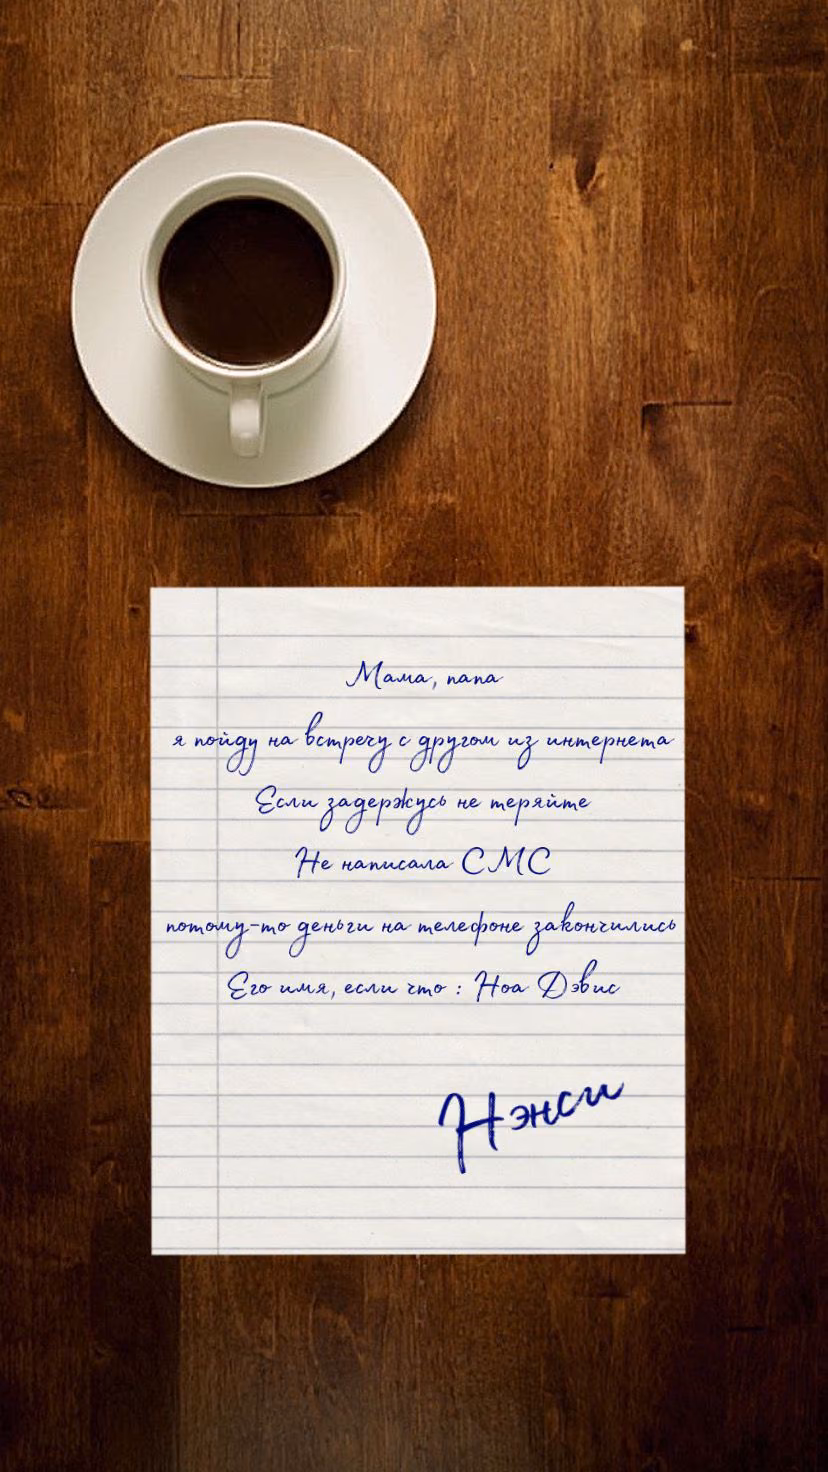 Мама, папа
я пойду на встречу с другом из интернета
Если задержусь не теряйте
Не написала СМС
потому-то деньги на телефоне закончились
Его имя, если что : Ноа Дэвис
Нэнси